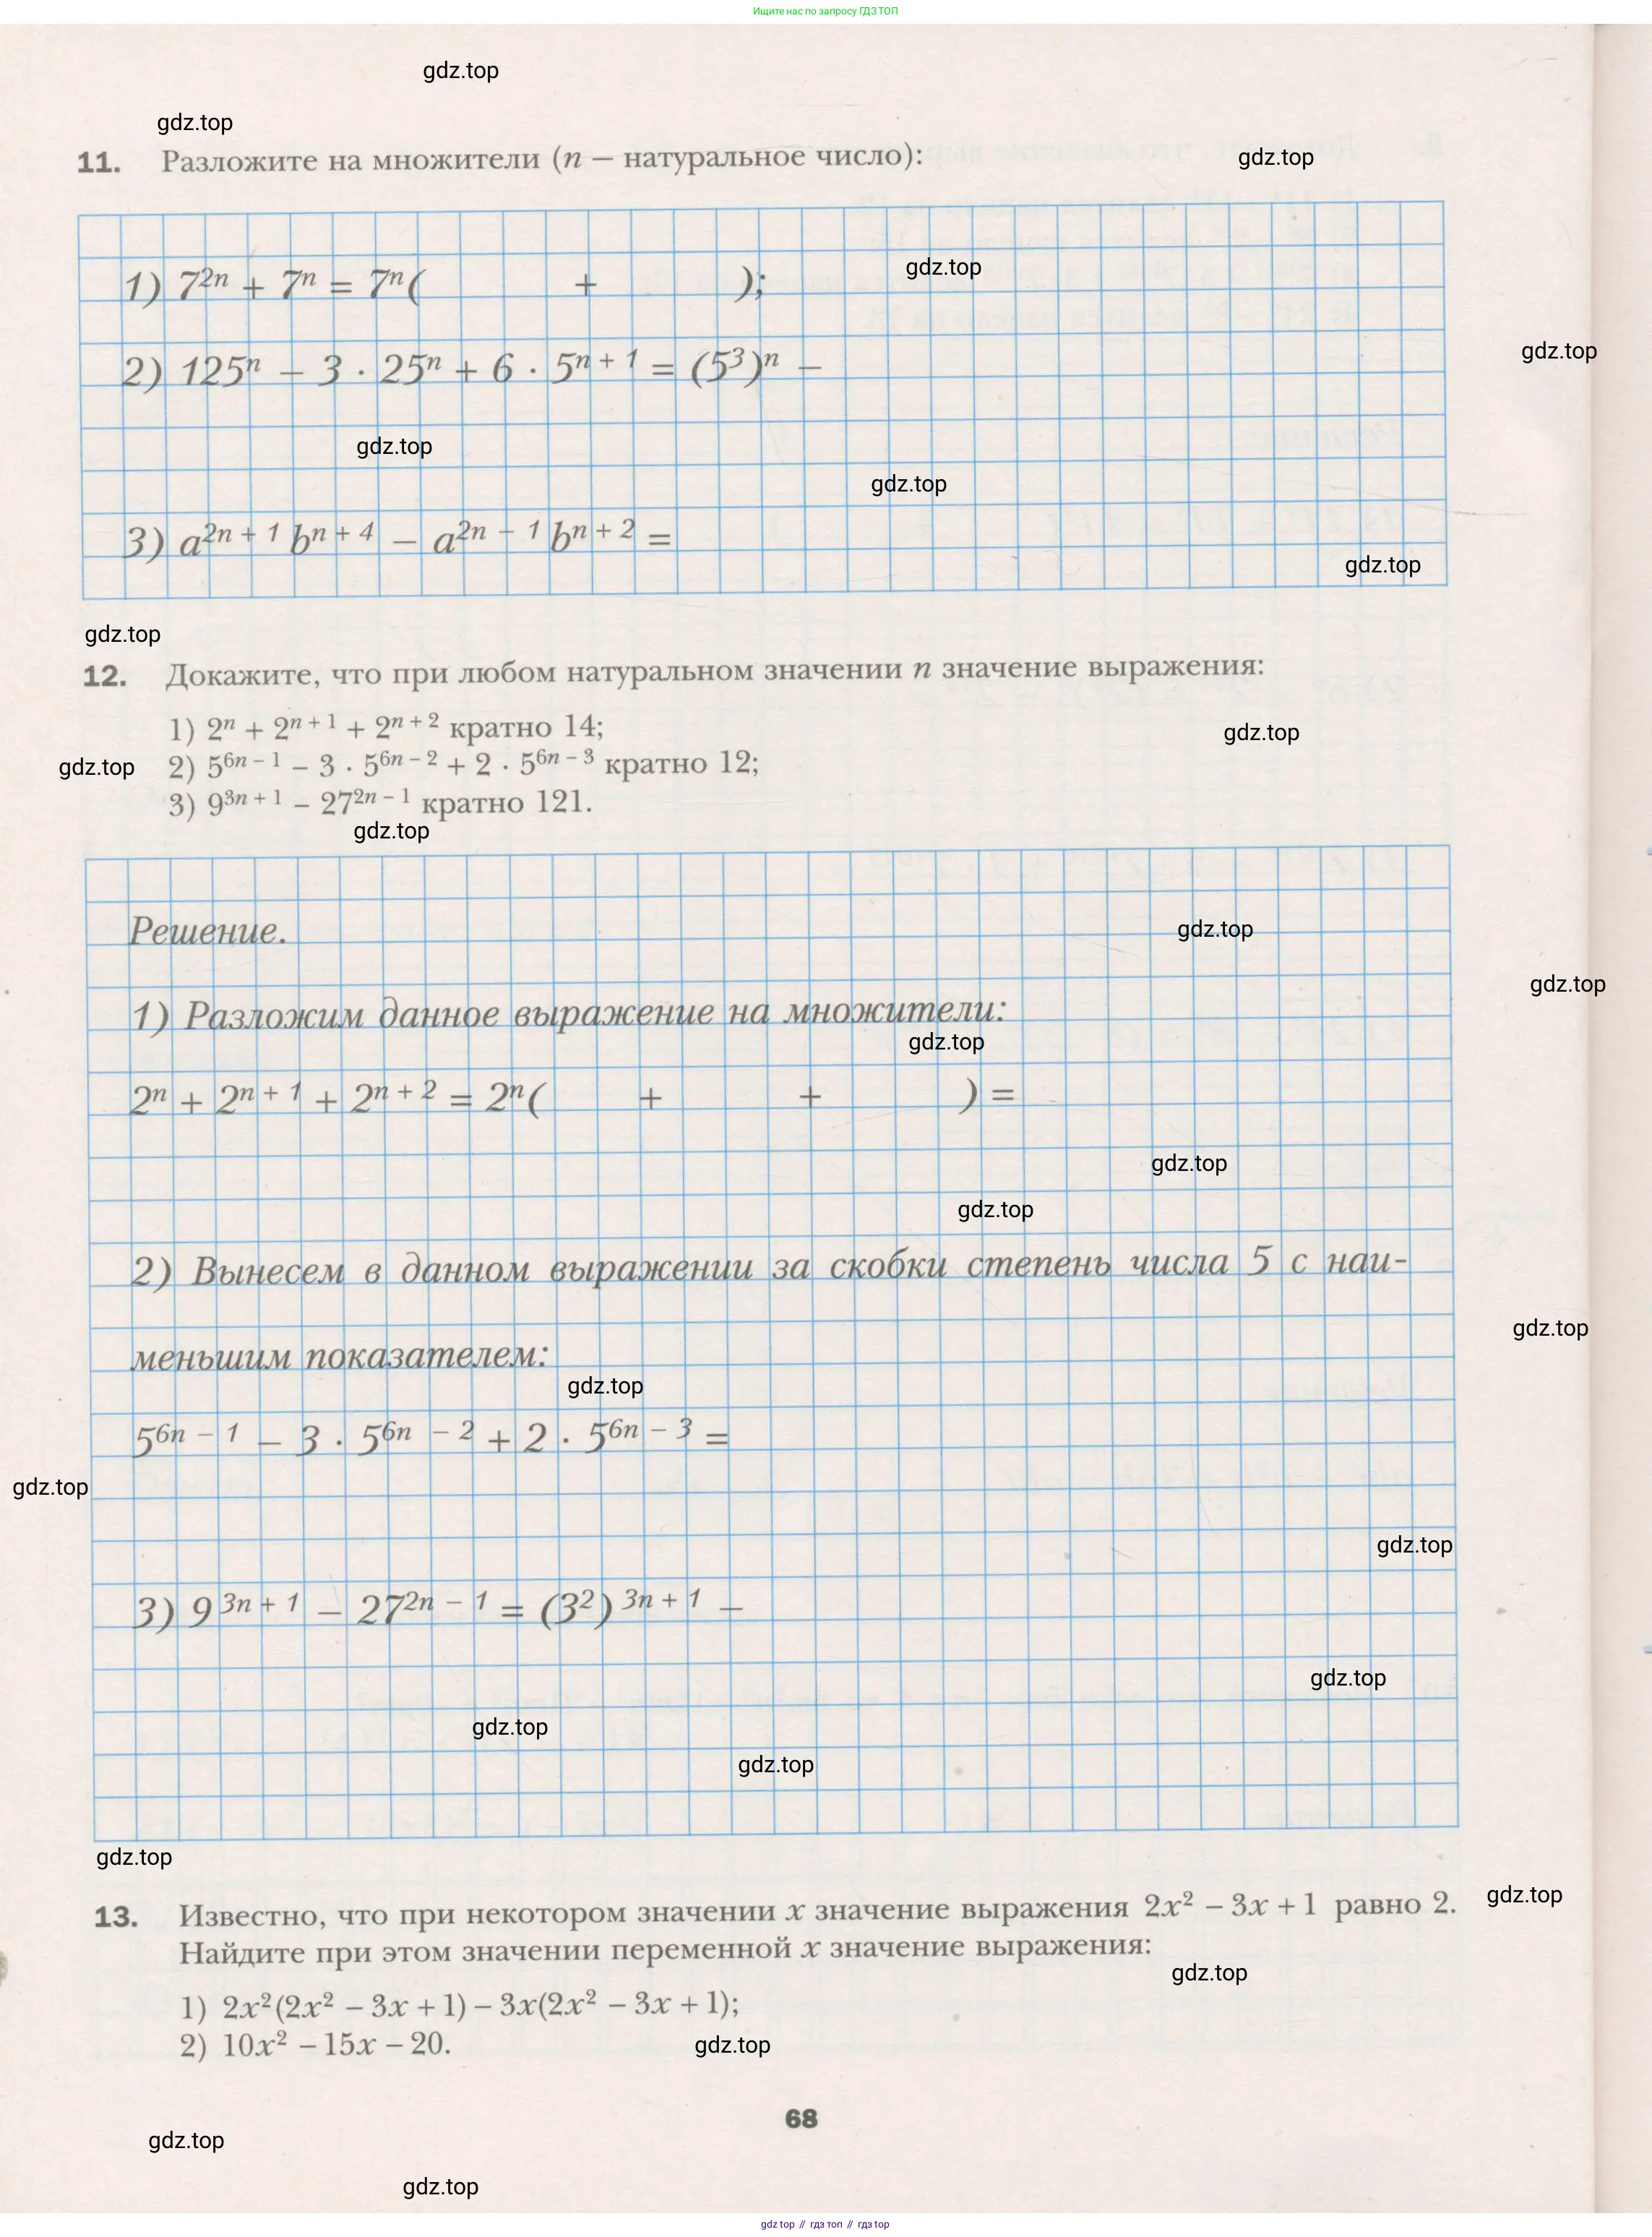 Ищите нас по запросу ГДЗ ТОП
gdz.top
gdz.top
11. Разложите на множители (n – натуральное число):
gdz.top
1) 7²ⁿ + 7ⁿ = 7ⁿ( + );
gdz.top
gdz.top
2) 125ⁿ – 3 · 25ⁿ + 6 · 5ⁿ ⁺ ¹ = (5³)ⁿ –
gdz.top
gdz.top
3) a²ⁿ ⁺ ¹ bⁿ ⁺ ⁴ – a²ⁿ ⁻ ¹ bⁿ ⁺ ² =
gdz.top
gdz.top
12. Докажите, что при любом натуральном значении n значение выражения:
1) 2ⁿ + 2ⁿ ⁺ ¹ + 2ⁿ ⁺ ² кратно 14;
gdz.top
gdz.top
2) 5⁶ⁿ ⁻ ¹ – 3 · 5⁶ⁿ ⁻ ² + 2 · 5⁶ⁿ ⁻ ³ кратно 12;
3) 9³ⁿ ⁺ ¹ – 27²ⁿ ⁻ ¹ кратно 121.
gdz.top
Решение.
gdz.top
gdz.top
1) Разложим данное выражение на множители:
gdz.top
2ⁿ + 2ⁿ ⁺ ¹ + 2ⁿ ⁺ ² = 2ⁿ( + + ) =
gdz.top
gdz.top
2) Вынесем в данном выражении за скобки степень числа 5 с наи-
gdz.top
меньшим показателем:
gdz.top
5⁶ⁿ ⁻ ¹ – 3 · 5⁶ⁿ ⁻ ² + 2 · 5⁶ⁿ ⁻ ³ =
gdz.top
gdz.top
3) 9³ⁿ ⁺ ¹ – 27²ⁿ ⁻ ¹ = (3²)³ⁿ ⁺ ¹ –
gdz.top
gdz.top
gdz.top
gdz.top
gdz.top
13. Известно, что при некотором значении x значение выражения 2x² – 3x + 1 равно 2.
Найдите при этом значении переменной x значение выражения:
gdz.top
1) 2x²(2x² – 3x + 1) – 3x(2x² – 3x + 1);
2) 10x² – 15x – 20.
gdz.top
68
gdz.top
gdz.top
gdz top // гдз топ // гдз top